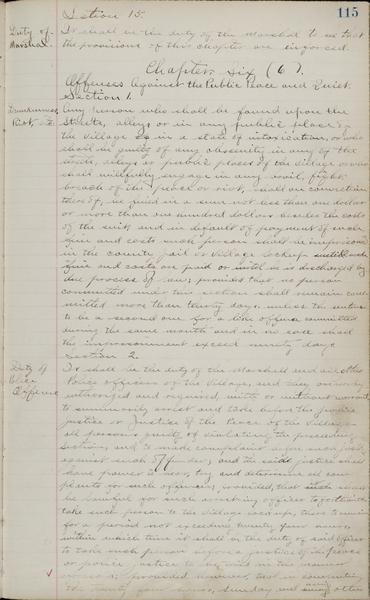 115
Section 15.
Duty of Marshal.
It shall be the duty of the Marshal to see that
the provisions of this chapter are enforced.
Chapter Six (6).
Offenses Against the Public Peace and Quiet.
Section 1.
Drunkenness, Riot,
Any person who shall be found upon the
streets, alleys or in any public place of
the Village in a state of intoxication, or who
shall be guilty of any obscenity in any of the
streets, alleys or public places of the Village or who
shall willfully engage in any broil, fight
breach of the peace or riot, shall on conviction
thereof, be fined in a sum not less than one dollar
or more than one hundred dollars besides the costs
of the suit and in default of payment of such
fine and costs such person shall be imprisoned
in the county jail or Village lockup until such
fine and costs are paid or until he is discharged by
due process of law; provided that no person
committed under this section shall remain com-
mitted more than thirty days, unless the sentence
to be a second one for a like offense committed
during the same month and in no case shall
the imprisonment exceed ninety days.
Section 2.
Duty of Police Officers
It shall be the duty of the Marshal and all other
Police officers of the Village, and they are hereby
authorized and required, with or without warrant
to summarily arrest and take before the police
justice or Justice of the Peace of the Village
all persons guilty of violating the preceding
section, and to make complaint against such person
and said justice shall
have power to hear, try and determine all com-
plaints for such offenses; provided, that it shall
be lawful for such arresting officer to forthwith
take such person to the Village lockup, there to remain
for a period not exceeding twenty four hours,
within which time it shall be the duty of said officer
to take such person before a justice of the peace
or police justice to be tried in the manner
provided however, that in computing
the twenty four hours, Sunday and any other